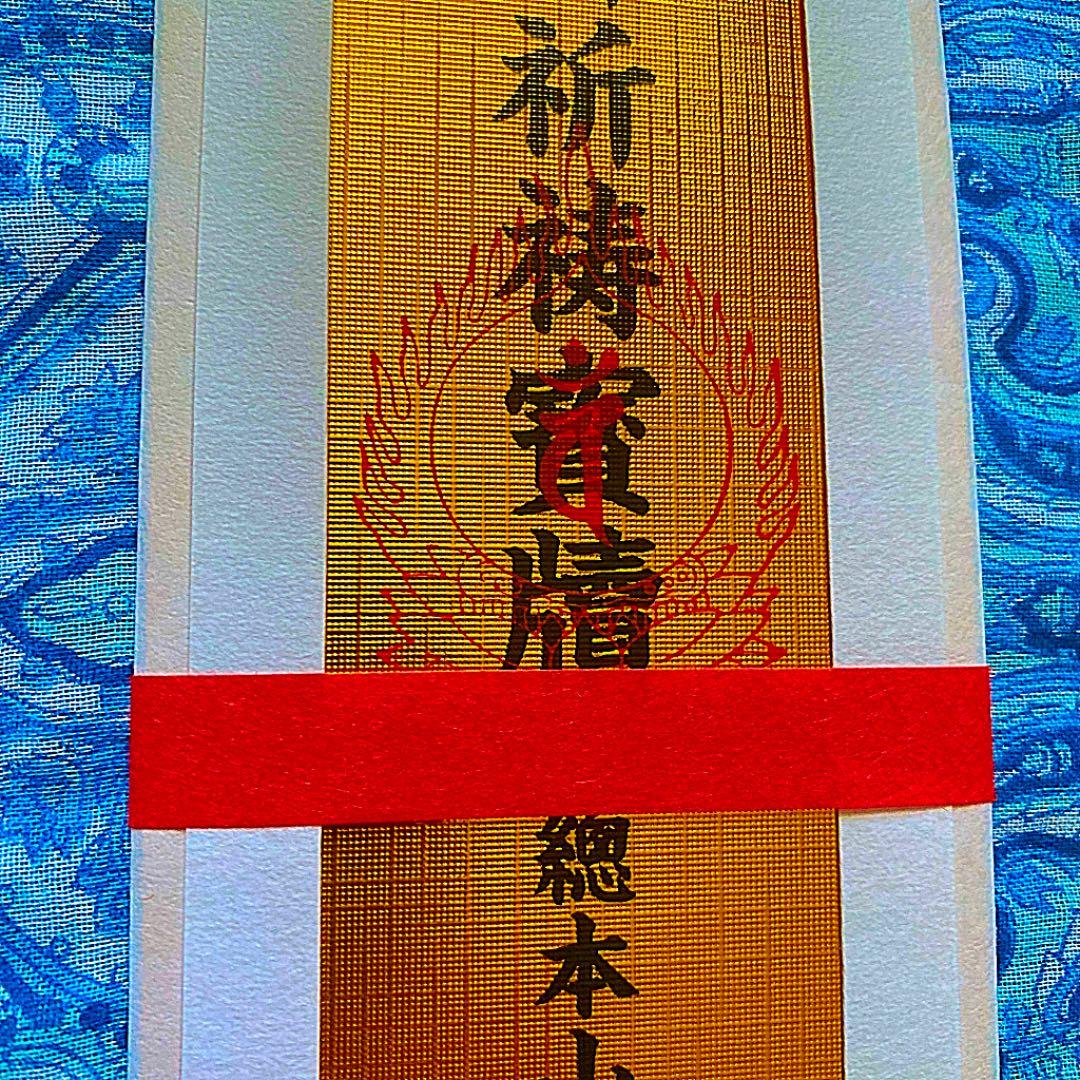 祈祷寶牘
總本山